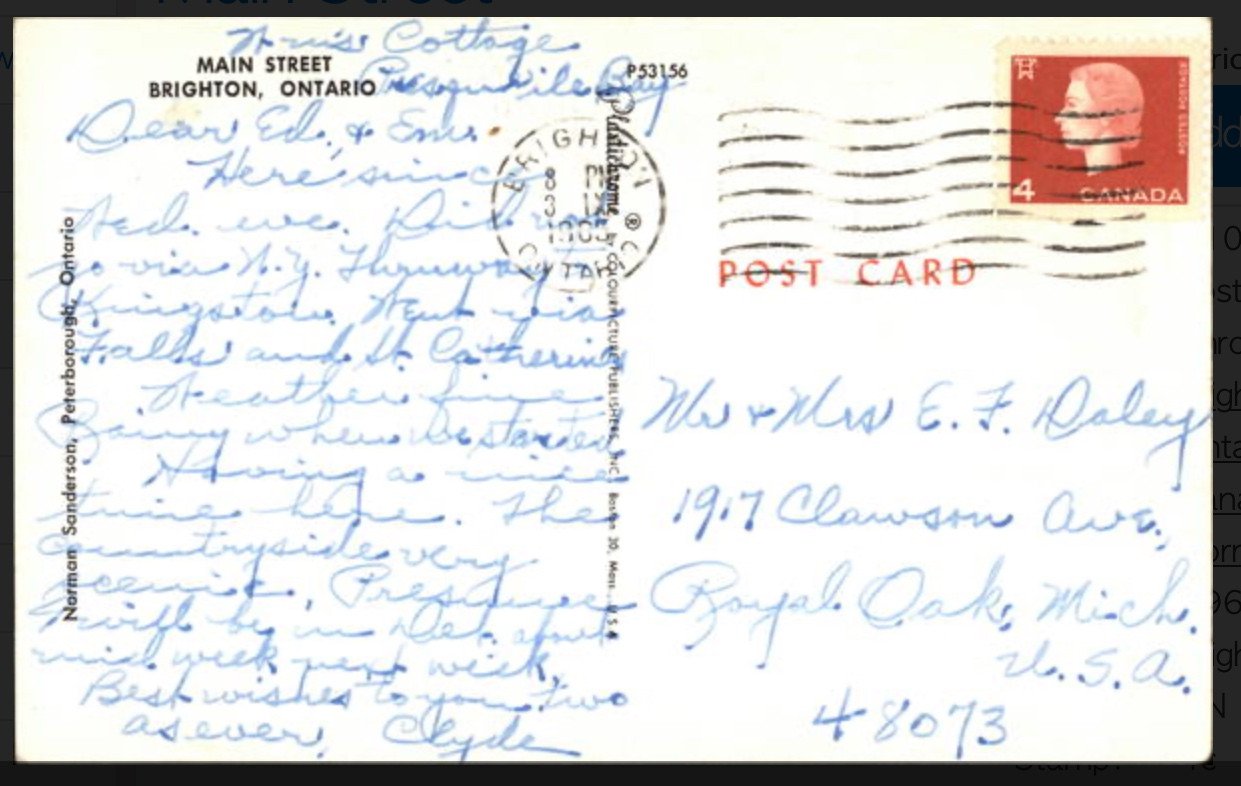 Main Street
MAIN STREET
BRIGHTON, ONTARIO
P53156
Cottage
Presqu'ile Bay
Dear Ed. & Em.
Here since
Wed. eve. Did not
go via N.Y. Thruway
Kingston. Went via
Falls and St. Catherines
Weather fine
Rainy when we started
Having a nice
time here. The
countryside very
scenic. Presume
I will be in Det. about
mid week next week.
Best wishes to you two
as ever, Clyde
Norman Sanderson, Peterborough, Ontario
Plastichrome ® by COLOURPICTURE PUBLISHERS, INC. Boston 30, Mass., U.S.A.
BRIGHTON
8 PM
ONTARIO
POSTED POSTAGE
4 CANADA
POST CARD
Mr & Mrs E. F. Daley
1917 Clawson Ave.,
Royal Oak, Mich.
U.S.A.
48073